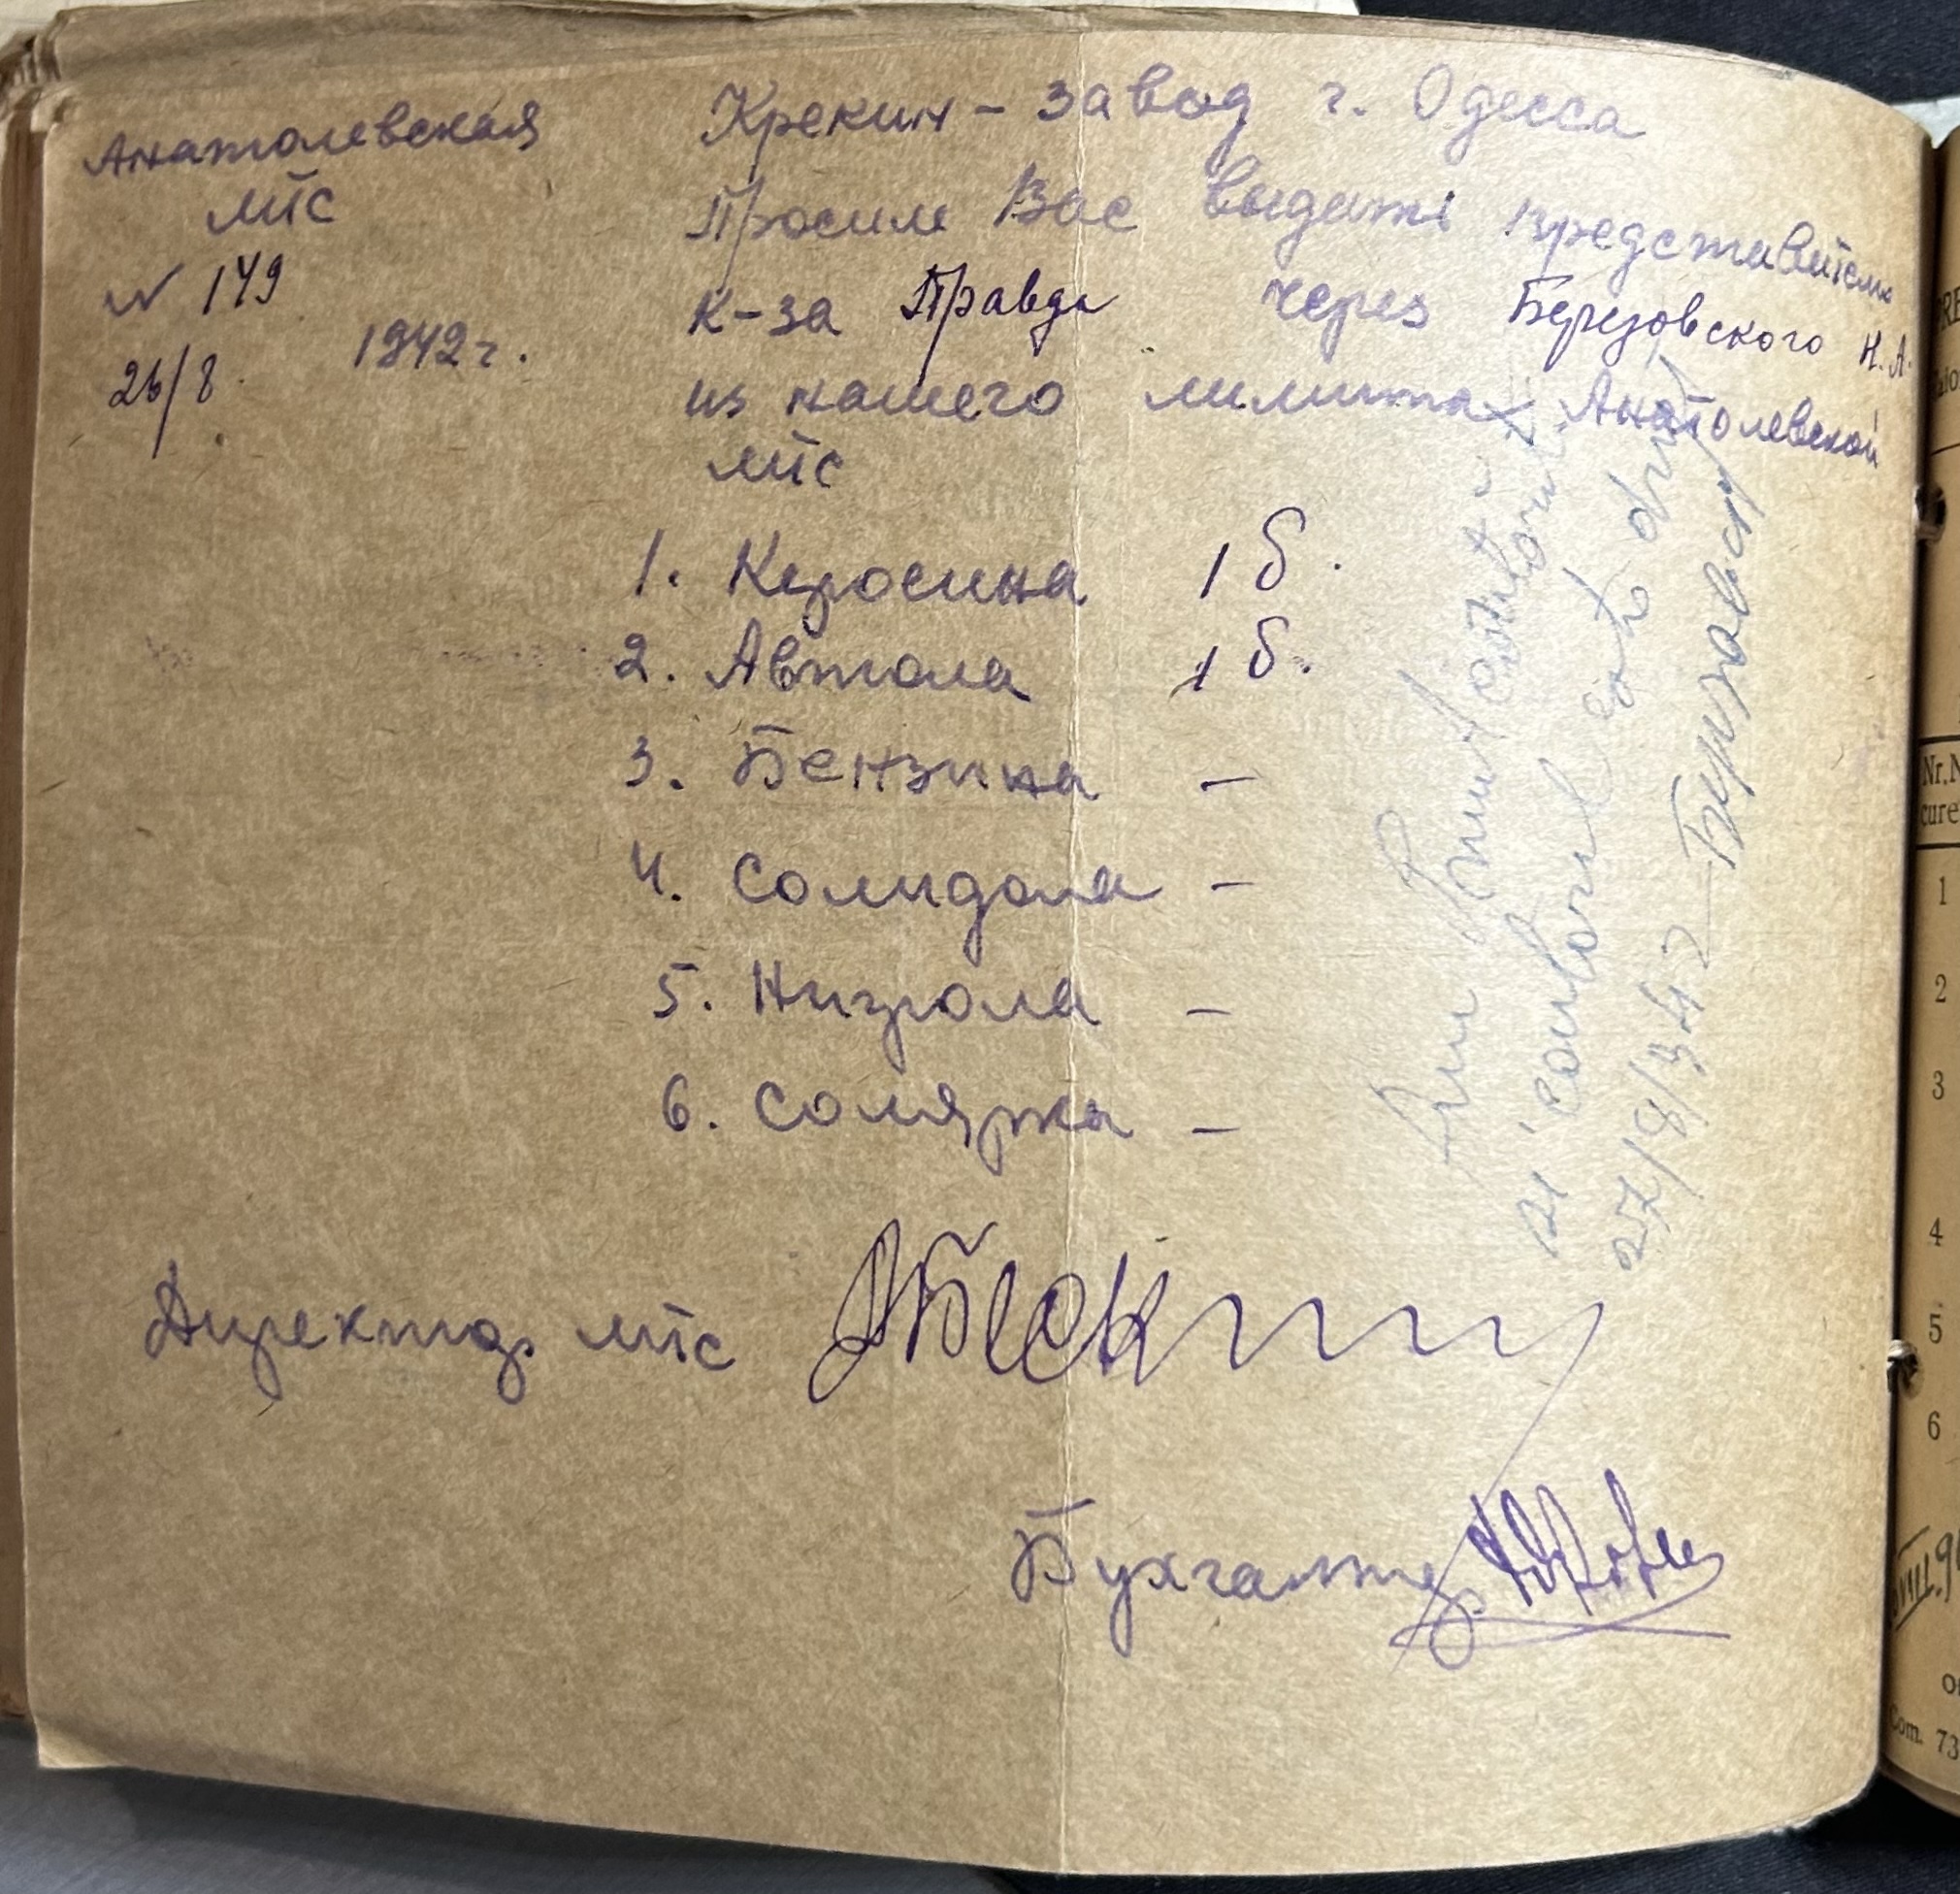 Анатолевская
мтс
N 149
26/8 1942 г.
Крекин - завод г. Одесса
Просим Вас выдать представителю
к-за Правда через Березовского Н.А.
из нашего лимита Анатолевской
мтс
1. Керосина 1 б.
2. Автола 1 б.
3. Бензина -
4. Солидола -
5. Нигрола -
6. Солярка -
Директор мтс
Бухгалтер
27/8/942
PRE
Nr.
cure
1
2
3
4
5
6
VIII.9
Com. 73